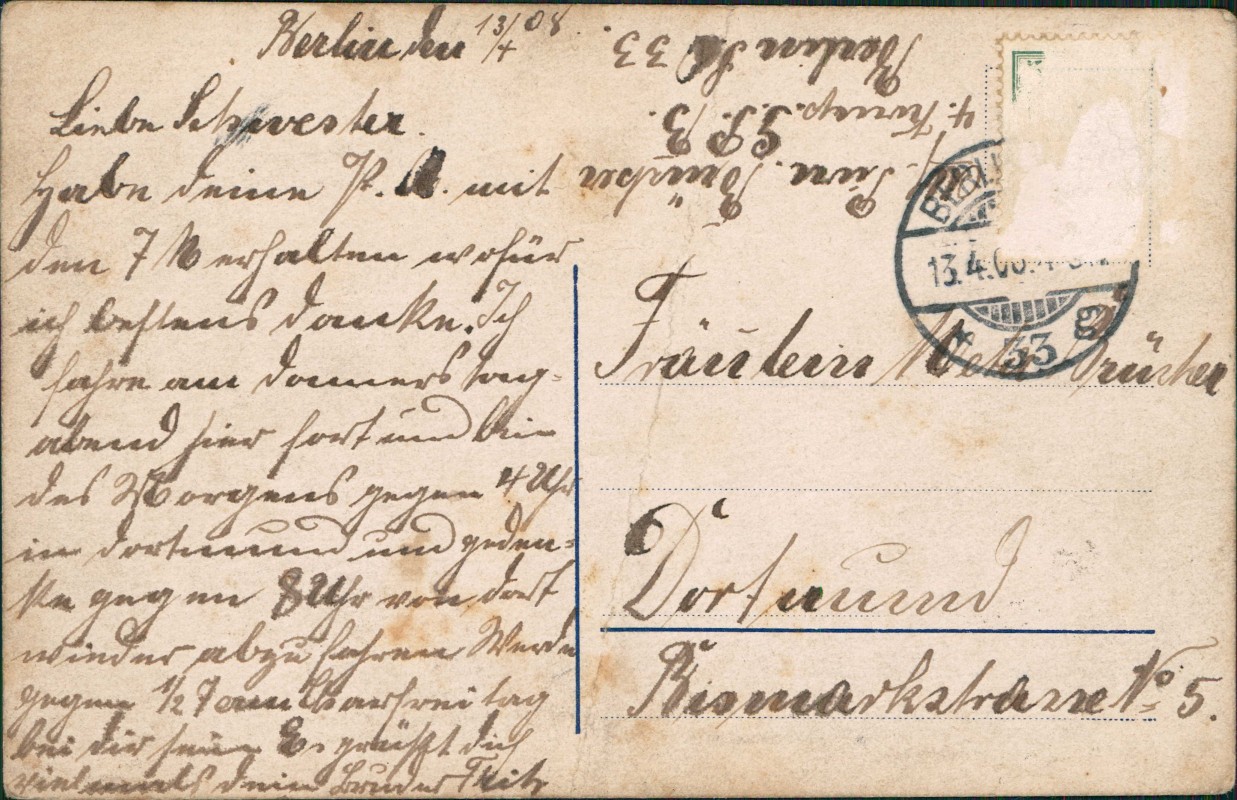 Berlin den 13/4 08.
Liebe Schwester.
Habe deine P. K. mit
den 7 M erhalten wofür
ich bestens danke. Ich
fahre am Donnerstag-
abend hier fort und bin
des Morgens gegen 4 Uhr
in Dortmund und geden-
ke gegen 8 Uhr von dort
wieder abzufahren Werde
gegen 1/2 7 am Charfreitag
bei dir sein Es grüßt dich
vielmals dein Bruder Fritz
Berlin 33
4. Komp.
BERLIN
13.4.08.
* 33 g
Fräulein
Dortmund
Bismarkstrasse No 5.